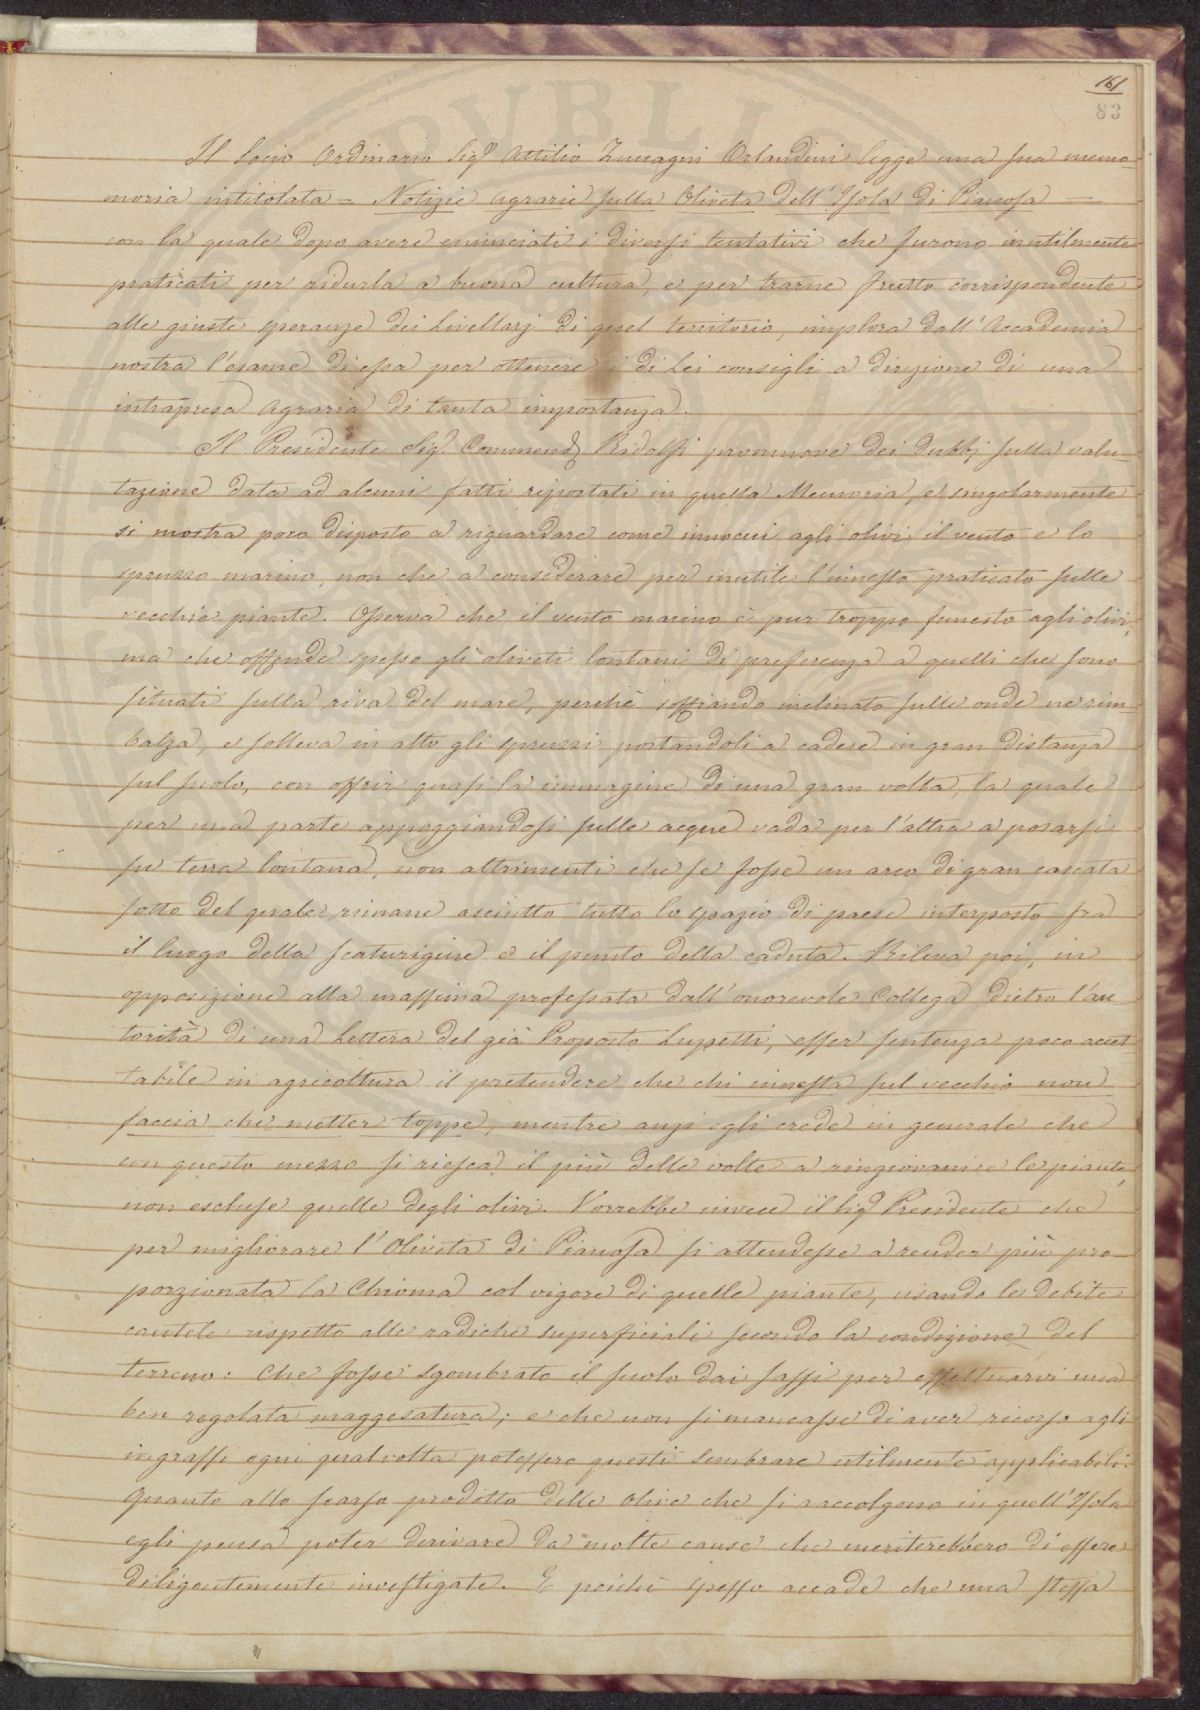 161
83
Il Socio Ordinario Sig.r Attilio Zuccagni Orlandini legge una sua memo-
moria intitolata = Notizie agrarie sulla Oliveta dell'Isola di Pianosa =
con la quale dopo avere enunciati i diversi tentativi che furono inutilmente
praticati per ridurla a buona cultura, e per trarne frutto corrispondente
alle giuste speranze dei Livellarj di quel territorio, implora dall'Accademia
nostra l'esame di essa per ottenere i di Lei consigli a direzione di una
intrapresa agraria di tanta importanza.
Il Presidente Sig.r Commend. Ridolfi promuove dei dubbj sulla valu-
tazione data ad alcuni fatti riportati in quella Memoria, e singolarmente
si mostra poco disposto a riguardare come innocui agli olivi il vento e lo
spruzzo marino, non che a considerare per inutile l'innesto praticato sulle
vecchie piante. Osserva che il vento marino è pur troppo funesto agli olivi,
ma che offende spesso gli oliveti lontani di preferenza a quelli che sono
situati sulla riva del mare, perchè soffiando inclinato sulle onde ne rim-
balza, e solleva in alto gli spruzzi portandoli a cadere in gran distanza
sul suolo, con offrir quasi la immagine di una gran volta, la quale
per una parte appoggiandosi sulle acque vada per l'altra a posarsi
su terra lontana, non altrimenti che se fosse un arco di gran cascata
sotto del quale rimane asciutto tutto lo spazio di paese interposto fra
il luogo della scaturigine e il punto della caduta. Rileva poi, in
opposizione alla massima professata dall'onorevole Collega dietro l'au
torità di una Lettera del già Proposto Lupetti, esser sentenza poco accet-
tabile in agricoltura il pretendere che chi innesta sul vecchio non
faccia che metter toppe, mentre anzi egli crede in generale che
con questo mezzo si riesca il più delle volte a ringiovanire le piante,
non escluse quelle degli olivi. Vorrebbe invece il Sig.r Presidente che
per migliorare l'Oliveta di Pianosa si attendesse a render più pro-
porzionata la Chioma col vigore di quelle piante, usando le debite
cautele rispetto alle radiche superficiali secondo la condizione del
terreno: che fosse sgombrato il suolo dai sassi per effettuarvi una
ben regolata maggesatura; e che non si mancasse di aver ricorso agli
ingrassi ogni qualvolta potessero questi sembrare utilmente applicabili.
Quanto allo scarso prodotto delle olive che si raccolgono in quell'Isola
egli pensa poter derivare da molte cause che meriterebbero di essere
diligentemente investigate. E poichè spesso accade che una stessa